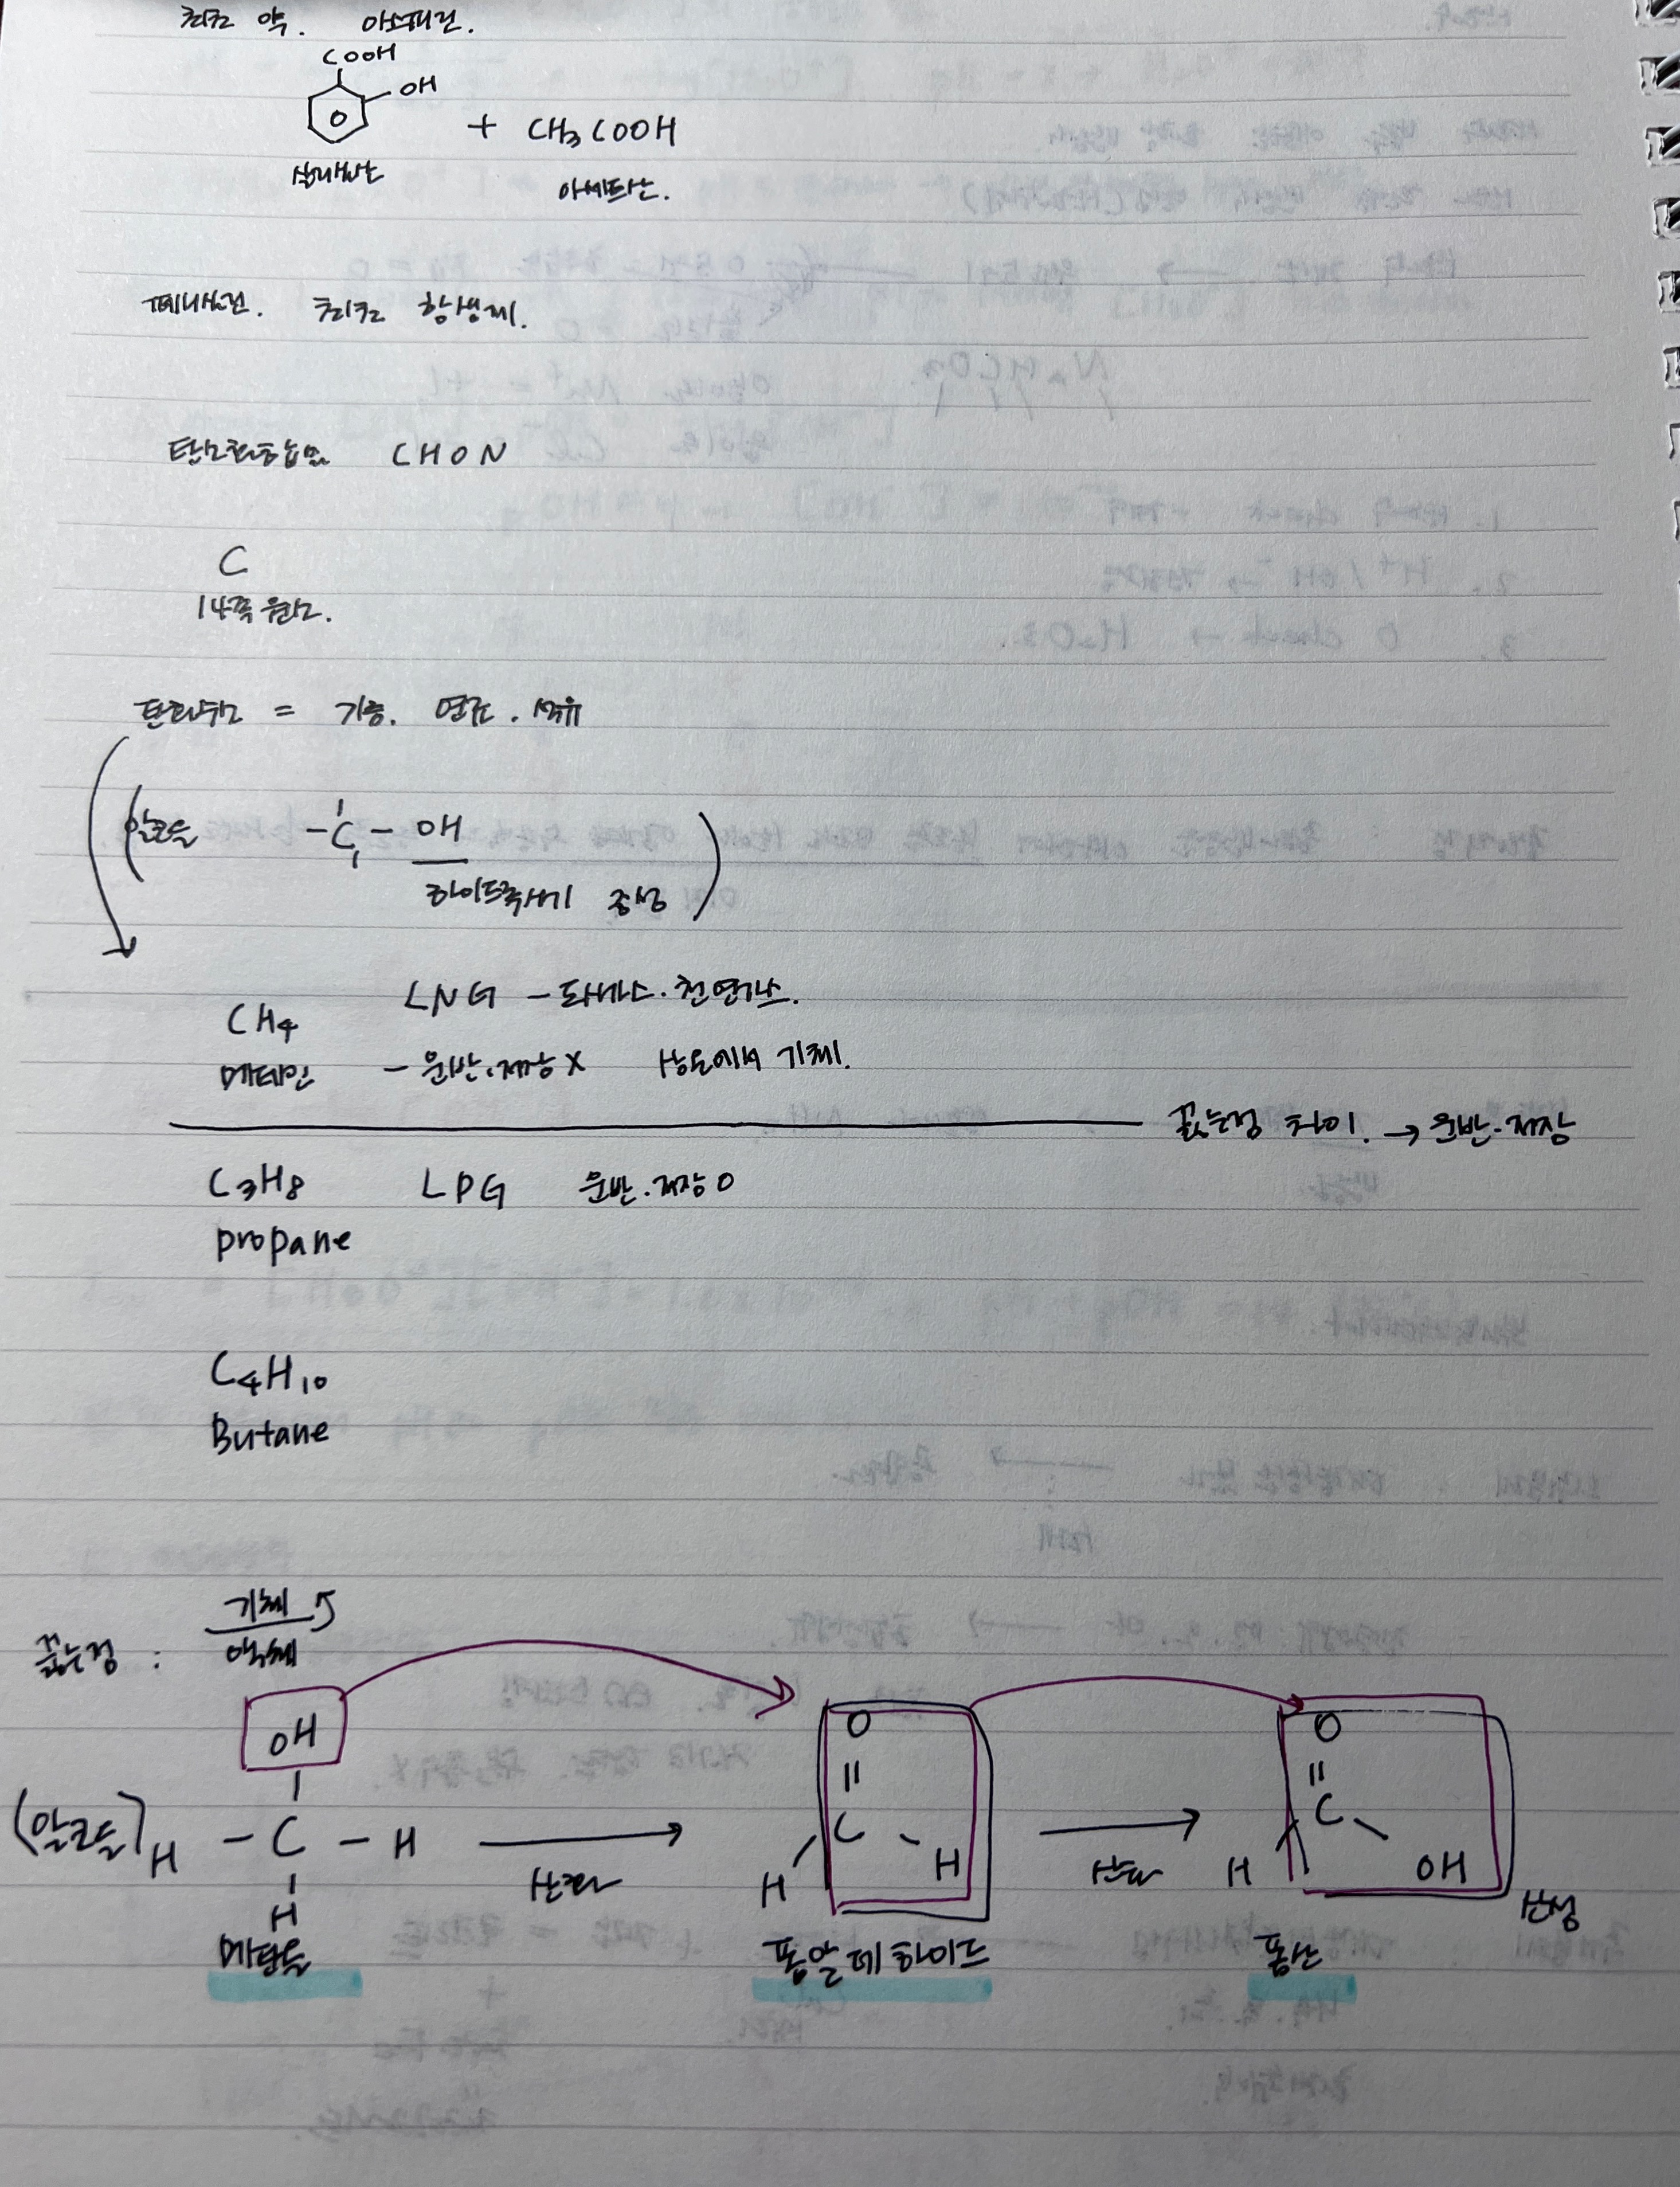 최초 약. 아스피린.
COOH
OH
+ CH₃COOH
살리실산
아세트산.
페니실린. 최초 항생제.
탄소화합물 CHON
C
14족 원소.
탄화수소 = 기능. 연료. 석유
(알코올 -C- OH)
하이드록시기 중성
LNG - 도시가스. 천연가스.
CH₄
메테인 - 운반.저장 X 상온에서 기체.
끓는점 차이. → 운반.저장
C₃H₈ LPG 운반.저장 O
propane
C₄H₁₀
Butane
기체
끓는점 : 액체
OH O O
(알코올) H - C - H → C → C
산화 H H 산화 H OH
H 산성
메탄올 폼알데하이드 폼산